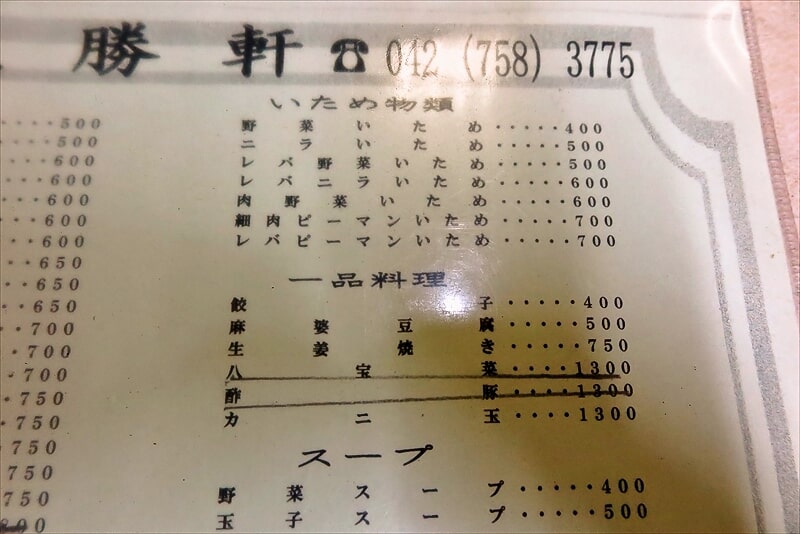 勝軒 ☎ 042 (758) 3775
いため物類
野菜いため・・・・・400
ニラいため・・・・・500
レバ野菜いため・・・・・500
レバニラいため・・・・・600
肉野菜いため・・・・・600
細肉ピーマンいため・・・・・700
レバピーマンいため・・・・・700
一品料理
餃子・・・・・400
麻婆豆腐・・・・・500
生姜焼き・・・・・750
八宝菜・・・・1300
酢豚・・・・1300
カニ玉・・・・1300
スープ
野菜スープ・・・・・400
玉子スープ・・・・・500
・・・・500
・・・500
・・・600
・・・600
・・・600
・・・600
・・・600
・・650
・・650
・・650
・・700
・・700
・・700
・・750
・・750
・750
・750